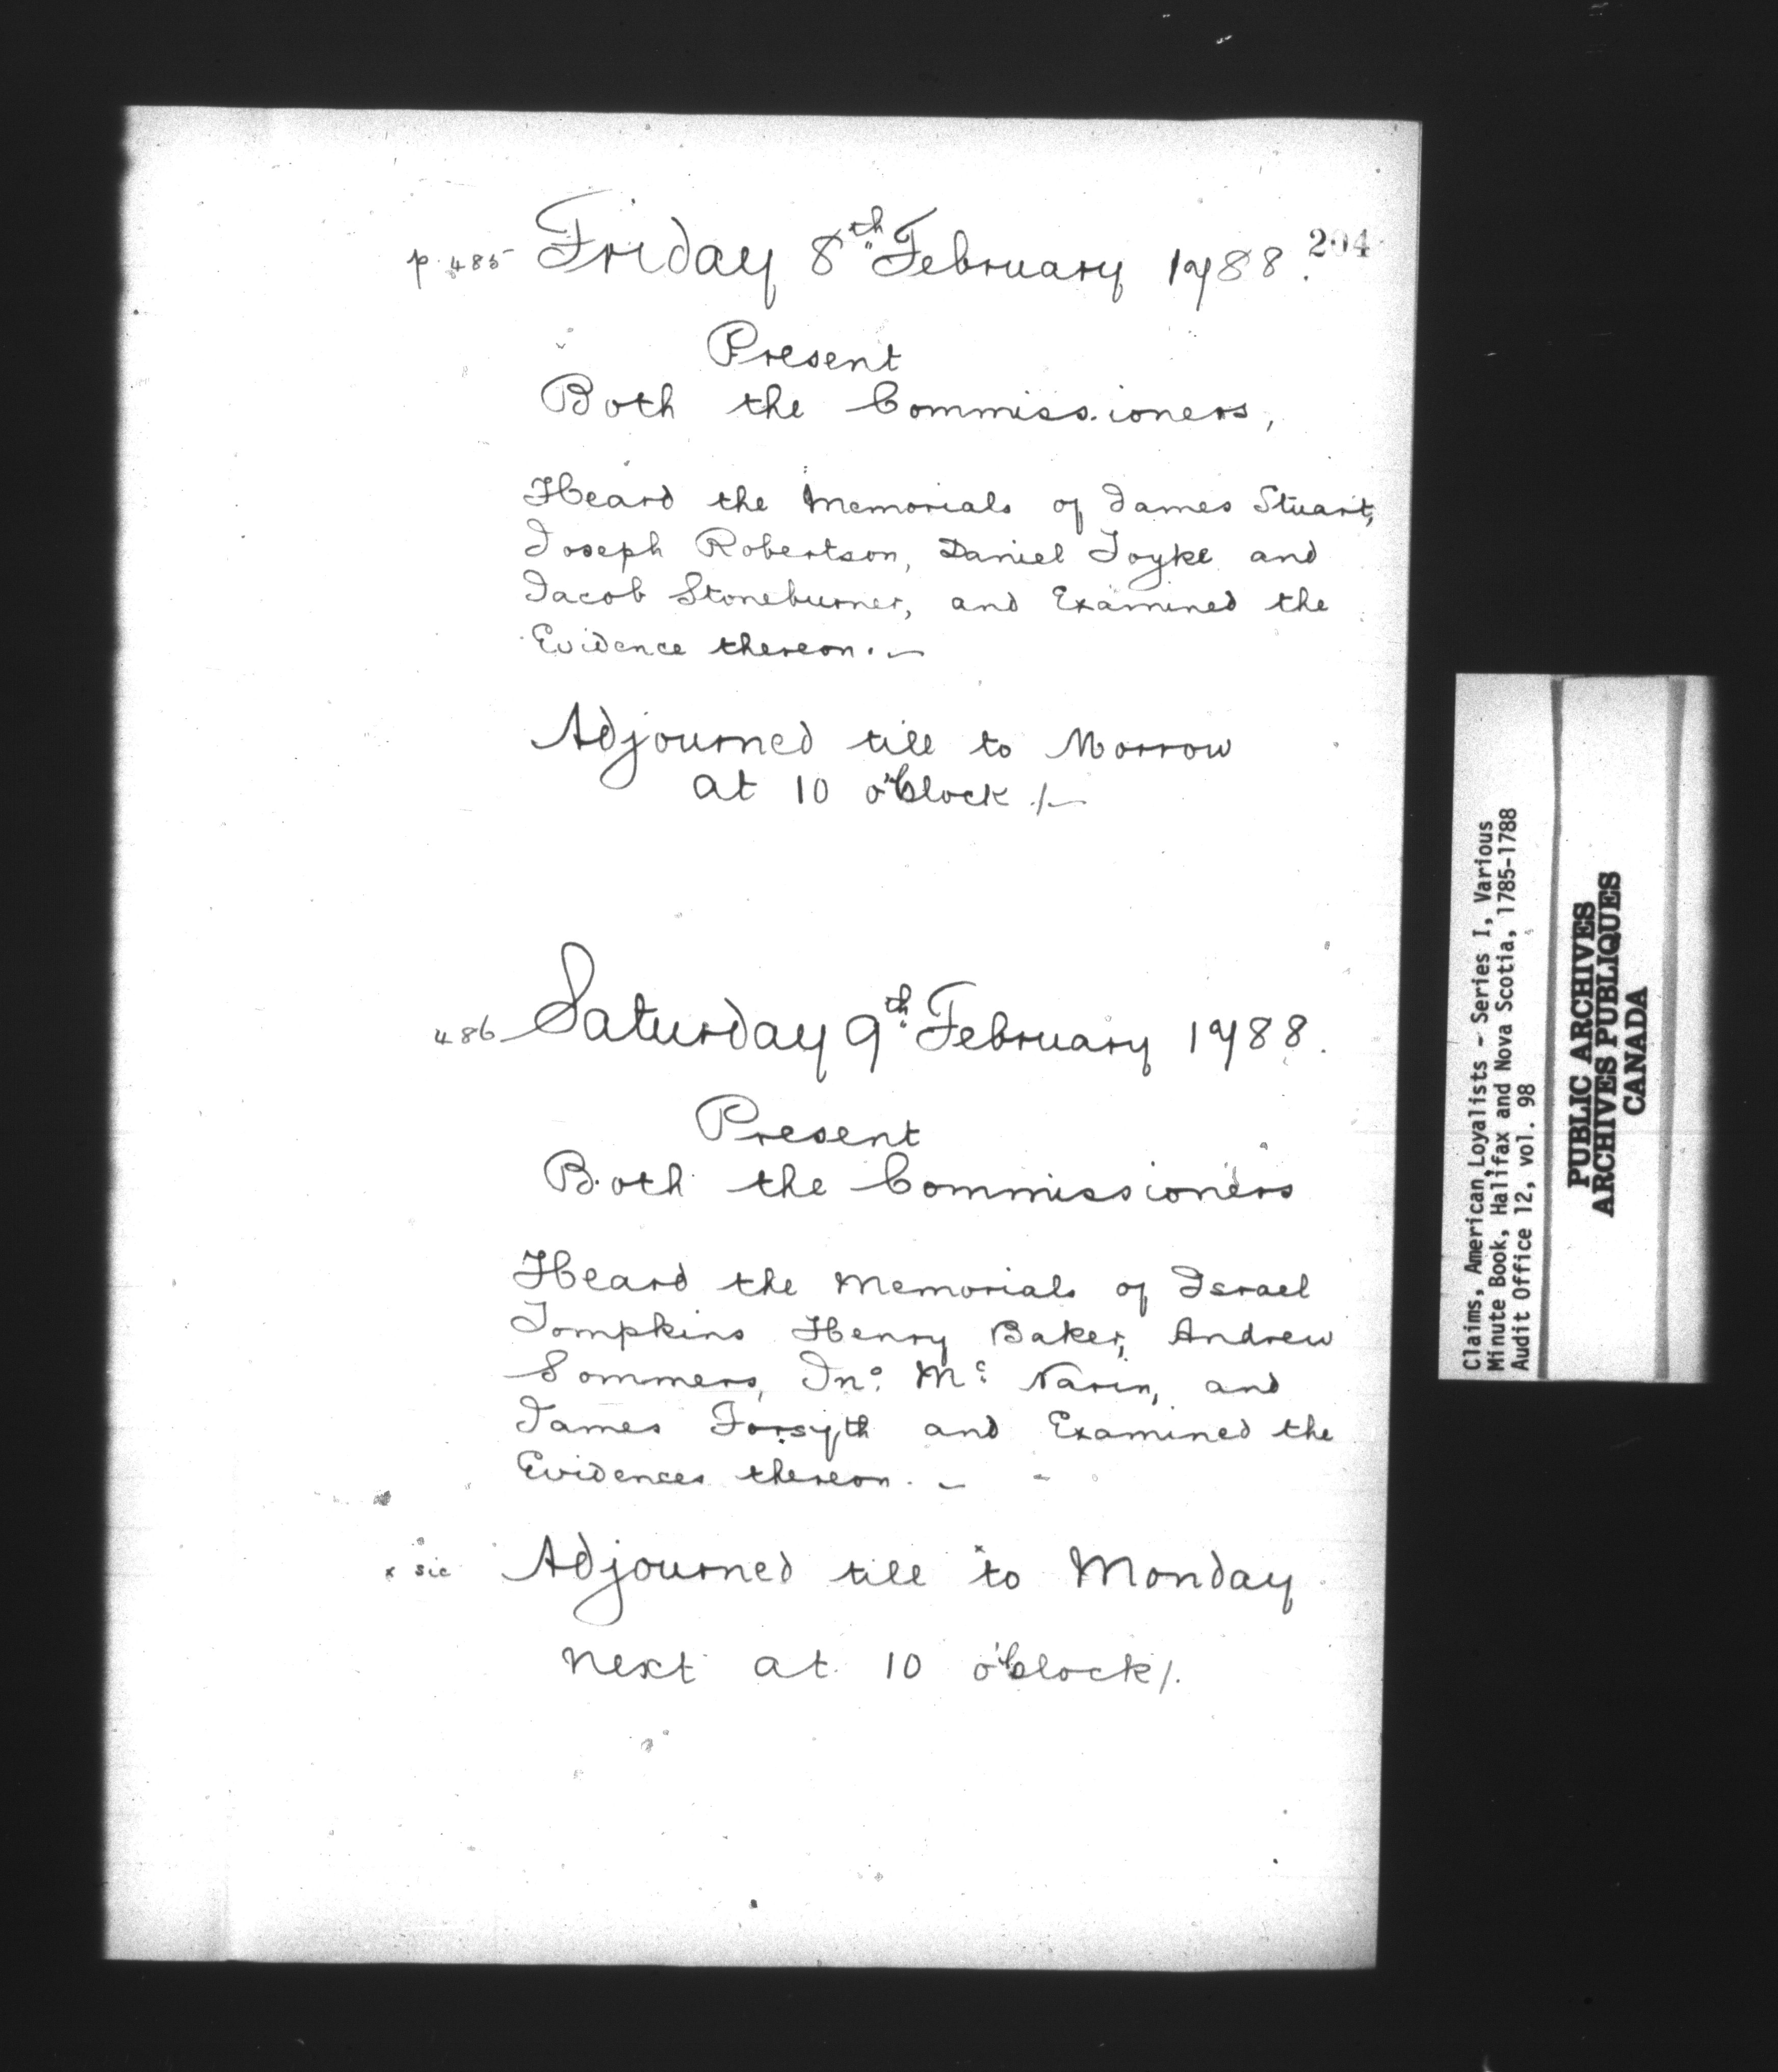 204
p. 485 Friday 8th February 1788.
Present
Both the Commissioners,
Heard the Memorials of James Stuart,
Joseph Robertson, Daniel Toyke and
Jacob Stoneburner, and Examined the
Evidence thereon. —
Adjourned till to Morrow
at 10 o'Clock /—
486 Saturday 9th February 1788.
Present
Both the Commissioners
Heard the Memorials of Israel
Tompkins Henry Baker, Andrew
Sommers, Jno. Mc. Narin, and
James Forsyth and Examined the
Evidences thereon. —
x sic Adjourned till x to Monday
next at 10 o'Clock /.
Claims, American Loyalists - Series I, Various
Minute Book, Halifax and Nova Scotia, 1785-1788
Audit Office 12, vol. 98
PUBLIC ARCHIVES
ARCHIVES PUBLIQUES
CANADA